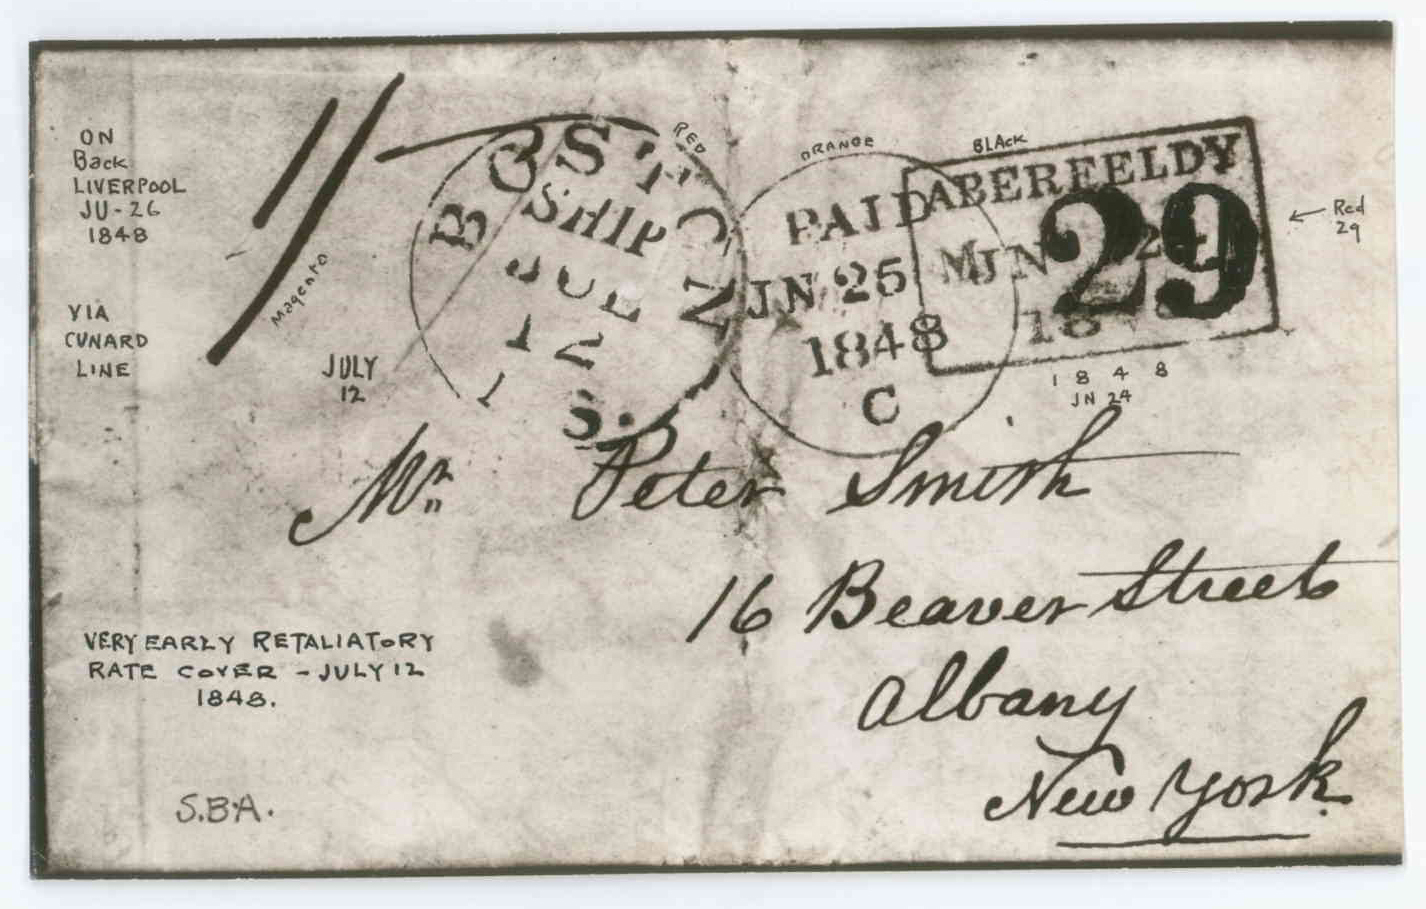 ON
Back
LIVERPOOL
JU-26
1848
VIA
CUNARD
LINE
Magenta
JULY
12
RED
BOSTON
SHIP
JUL
12
S.
ORANGE
PAID
JN 25
1848
C
BLACK
ABERFELDY
JN 24
18
29
Red
29
1 8 4 8
JN 24
Mr Peter Smith
16 Beaver Street
Albany
New York
VERY EARLY RETALIATORY
RATE COVER - JULY 12
1848.
S.B.A.